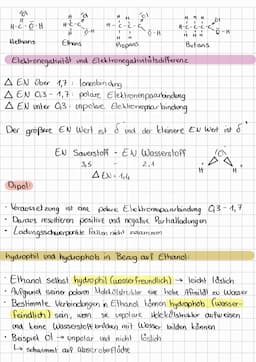 Methans
Ethans
Propans
Butans
Elektronegativität und Elektronegativitätsdifferenz
Δ EN über 1,7: Ionenbindung
Δ EN 0,3 - 1,7: polare Elektronenpaarbindung
Δ EN unter 0,3: unpolare Elektronenpaarbindung
Der größere EN Wert ist δ⁻ und der kleinere EN Wert ist δ⁺
EN Sauerstoff - EN Wasserstoff
3,5 - 2,1
Δ EN = 1,4
Dipol:
• Voraussetzung ist eine polare Elektronenpaarbindung 0,3 - 1,7
• Daraus resultieren positive und negative Partialladungen
• Ladungsschwerpunkte fallen nicht zusammen
hydrophil und hydrophob in Bezug auf Ethanol:
• Ethanol selbst hydrophil (wasserfreundlich) → leicht löslich
• Aufgrund seiner polaren Molekülstruktur eine hohe Affinität zu Wasser
• Bestimmte Verbindungen in Ethanol können hydrophob (wasser-
feindlich) sein, wenn sie unpolare Molekülstruktur aufweisen
und keine Wasserstoffbindung mit Wasser bilden können
• Beispiel Öl → unpolar und nicht löslich
↳ schwimmt auf Wasseroberfläche